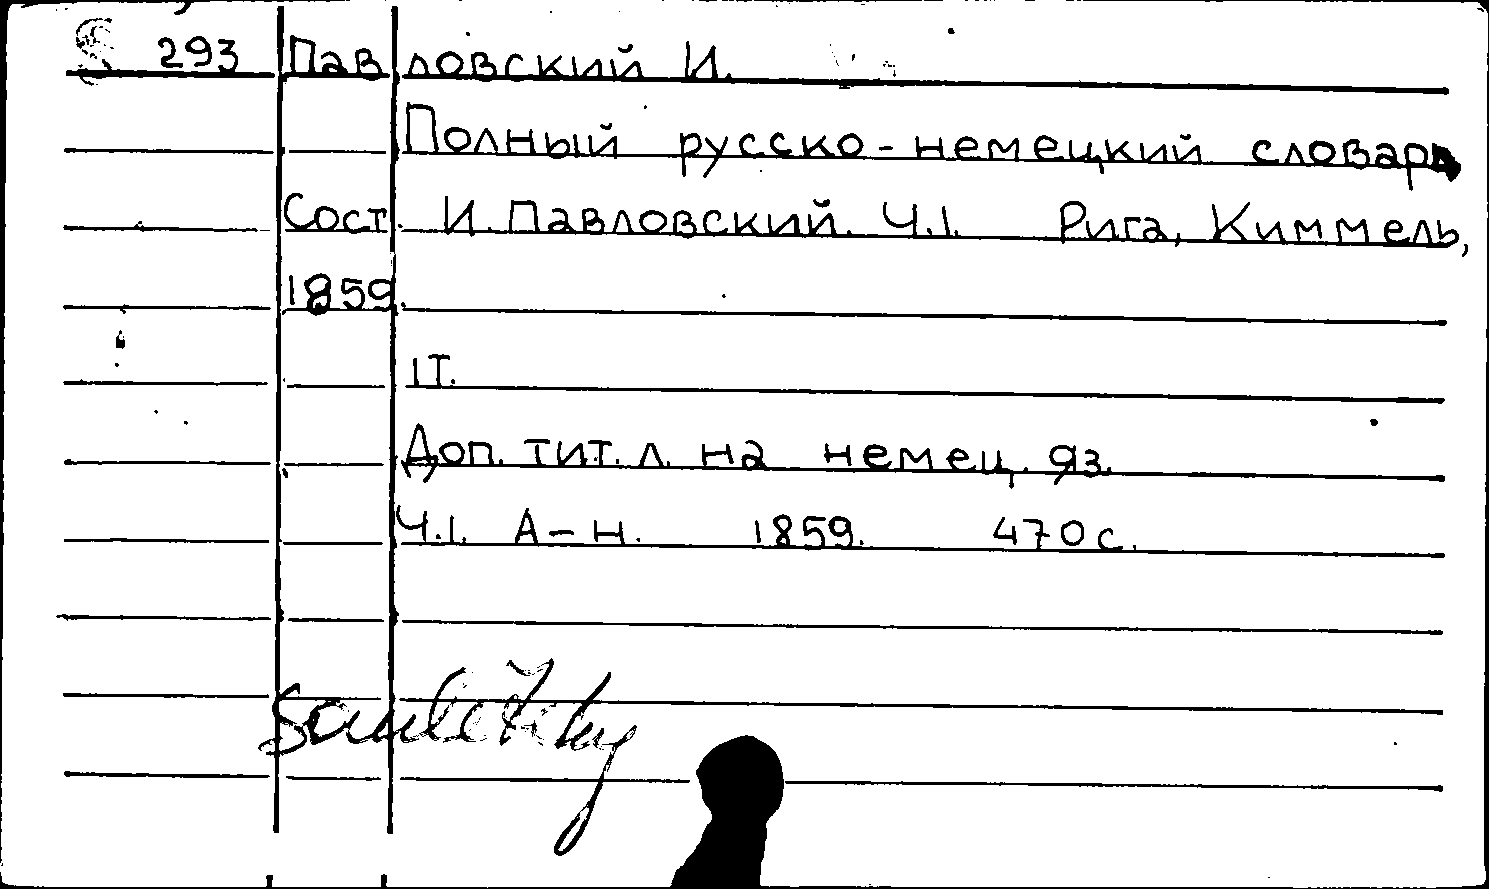 293 Павловский И.
Полный русско-немецкий словарь
Сост. И. Павловский. Ч.1. Рига, Киммель,
1859.
1Т.
Доп. тит. л. на немец. яз.
Ч.1. А-Н. 1859. 470 с.